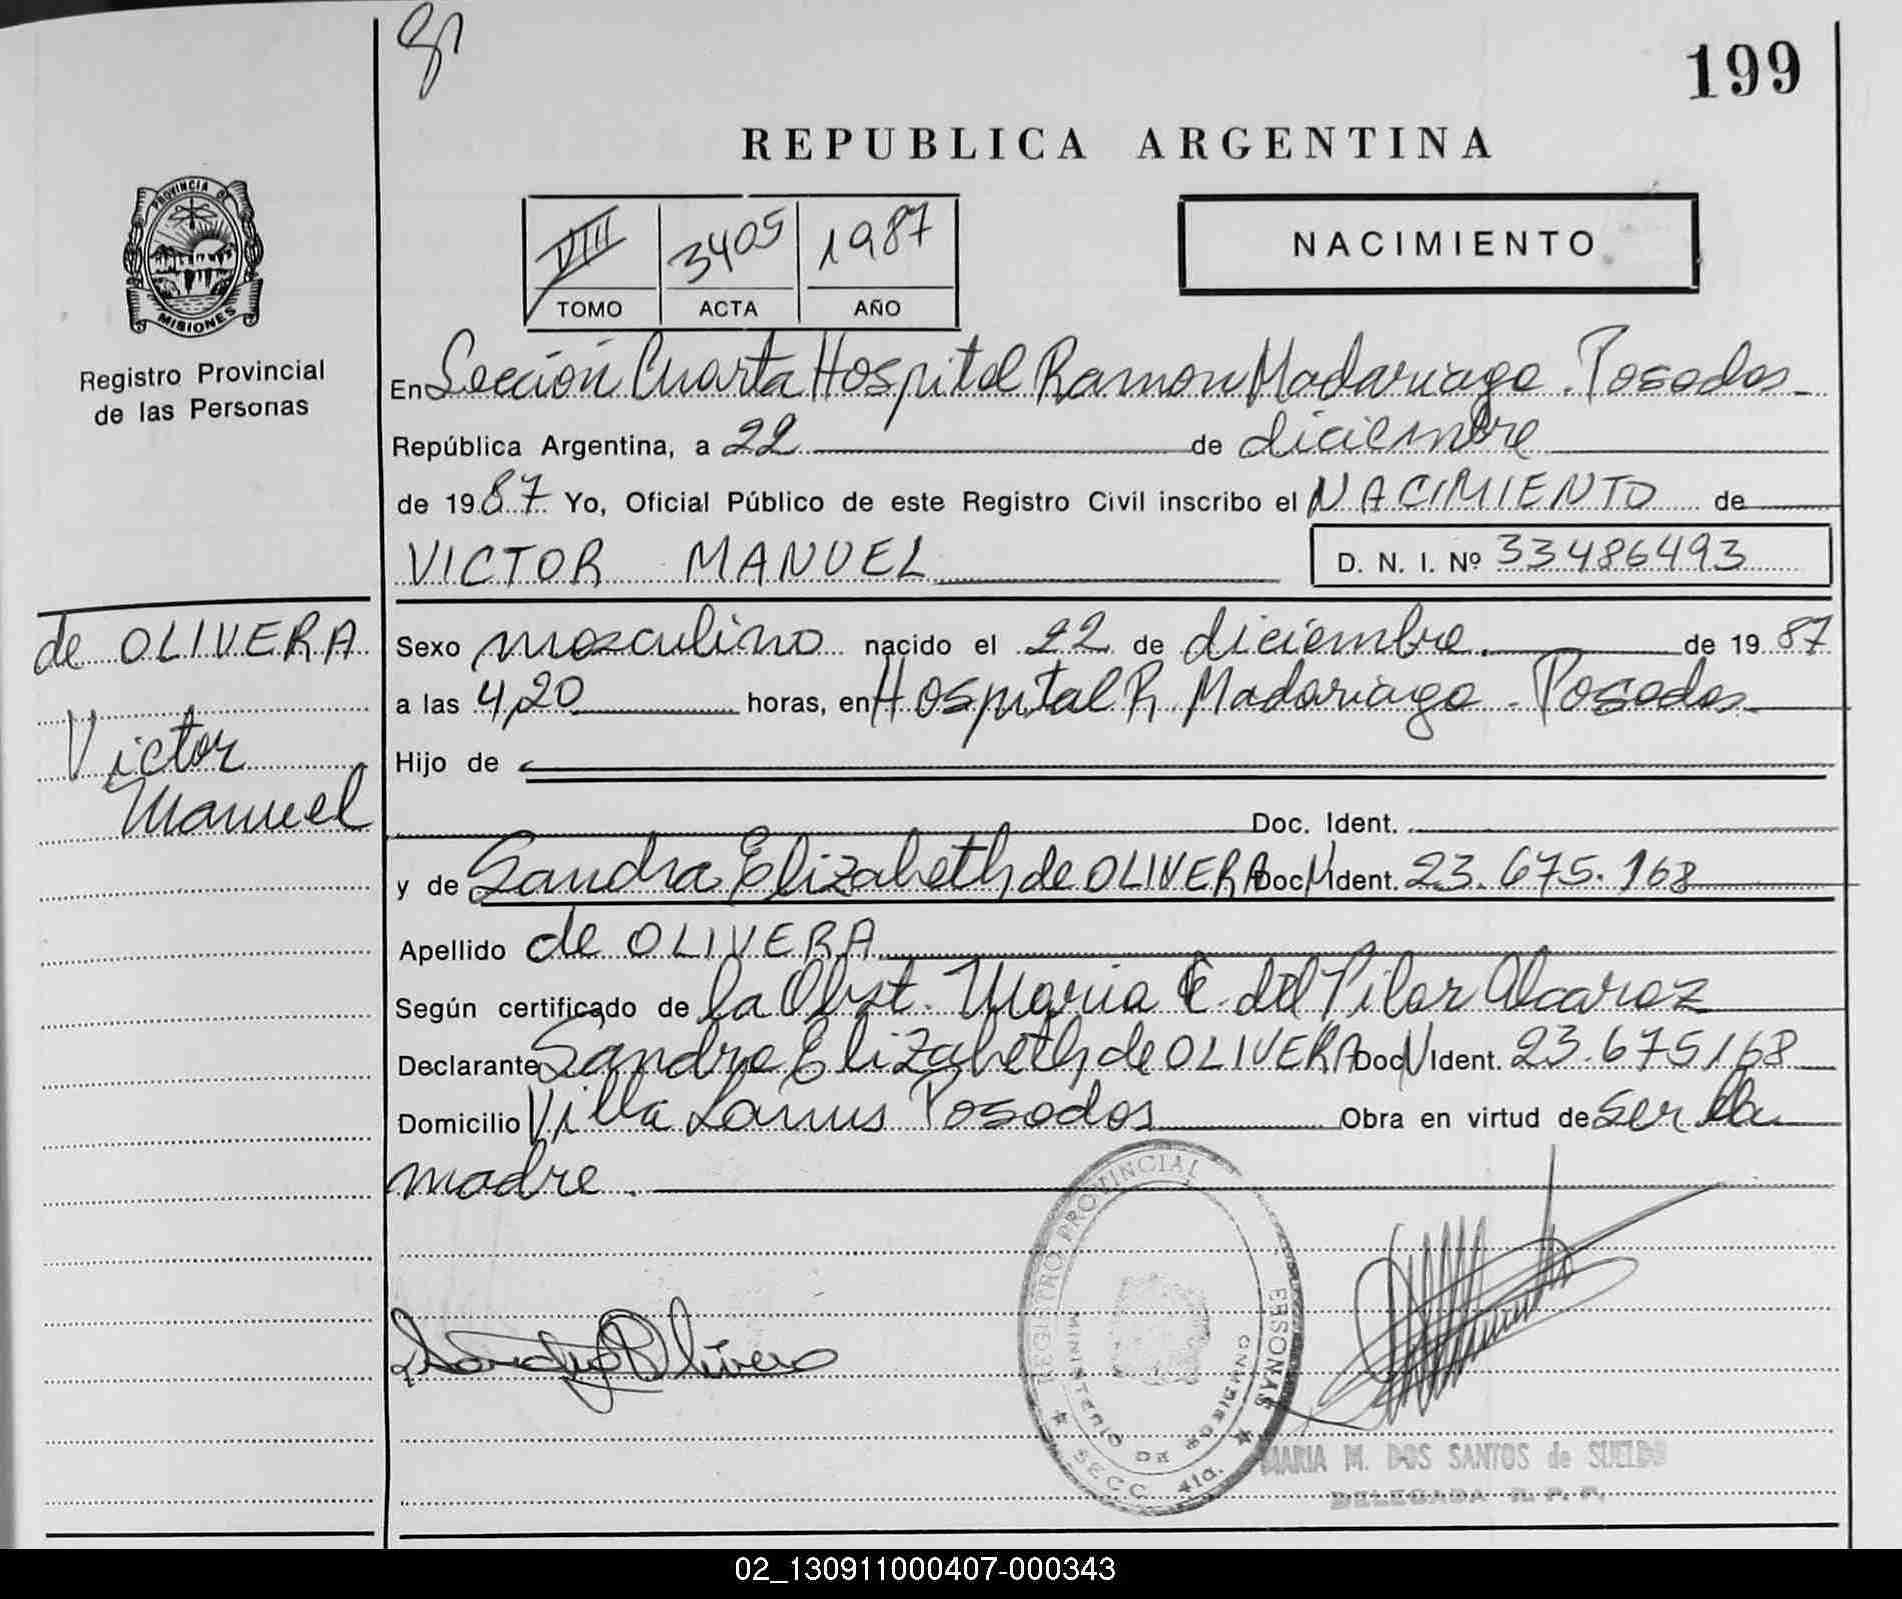 199
REPUBLICA ARGENTINA
PROVINCIA DE
MISIONES
Registro Provincial
de las Personas
VIII 3405 1987
TOMO ACTA AÑO
NACIMIENTO
En Sección Cuarta Hospital Ramon Madariaga. Posadas
República Argentina, a 22 de diciembre
de 1987 Yo, Oficial Público de este Registro Civil inscribo el NACIMIENTO de
VICTOR MANUEL D. N. I. Nº 33486493
de OLIVERA
Victor
Manuel
Sexo masculino nacido el 22 de diciembre. de 1987
a las 4,20 horas, en Hospital R. Madariaga - Posadas
Hijo de
Doc. Ident.
y de Sandra Elizabeth de OLIVERA Doc. Ident. 23.675.168
Apellido de OLIVERA
Según certificado de la Obst. Maria E. del Pilar Alcaraz
Declarante Sandra Elizabeth de OLIVERA Doc. Ident. 23.675168
Domicilio Villa Lanus Posadas Obra en virtud de ser la
madre.
REGISTRO PROVINCIAL
ERSONAS
MINISTERIO DE GOBIERNO
SECC. 4ta.
Sandra Olivera
MARIA M. DOS SANTOS de SUELDO
DELEGADA R. P. P.
02_130911000407-000343